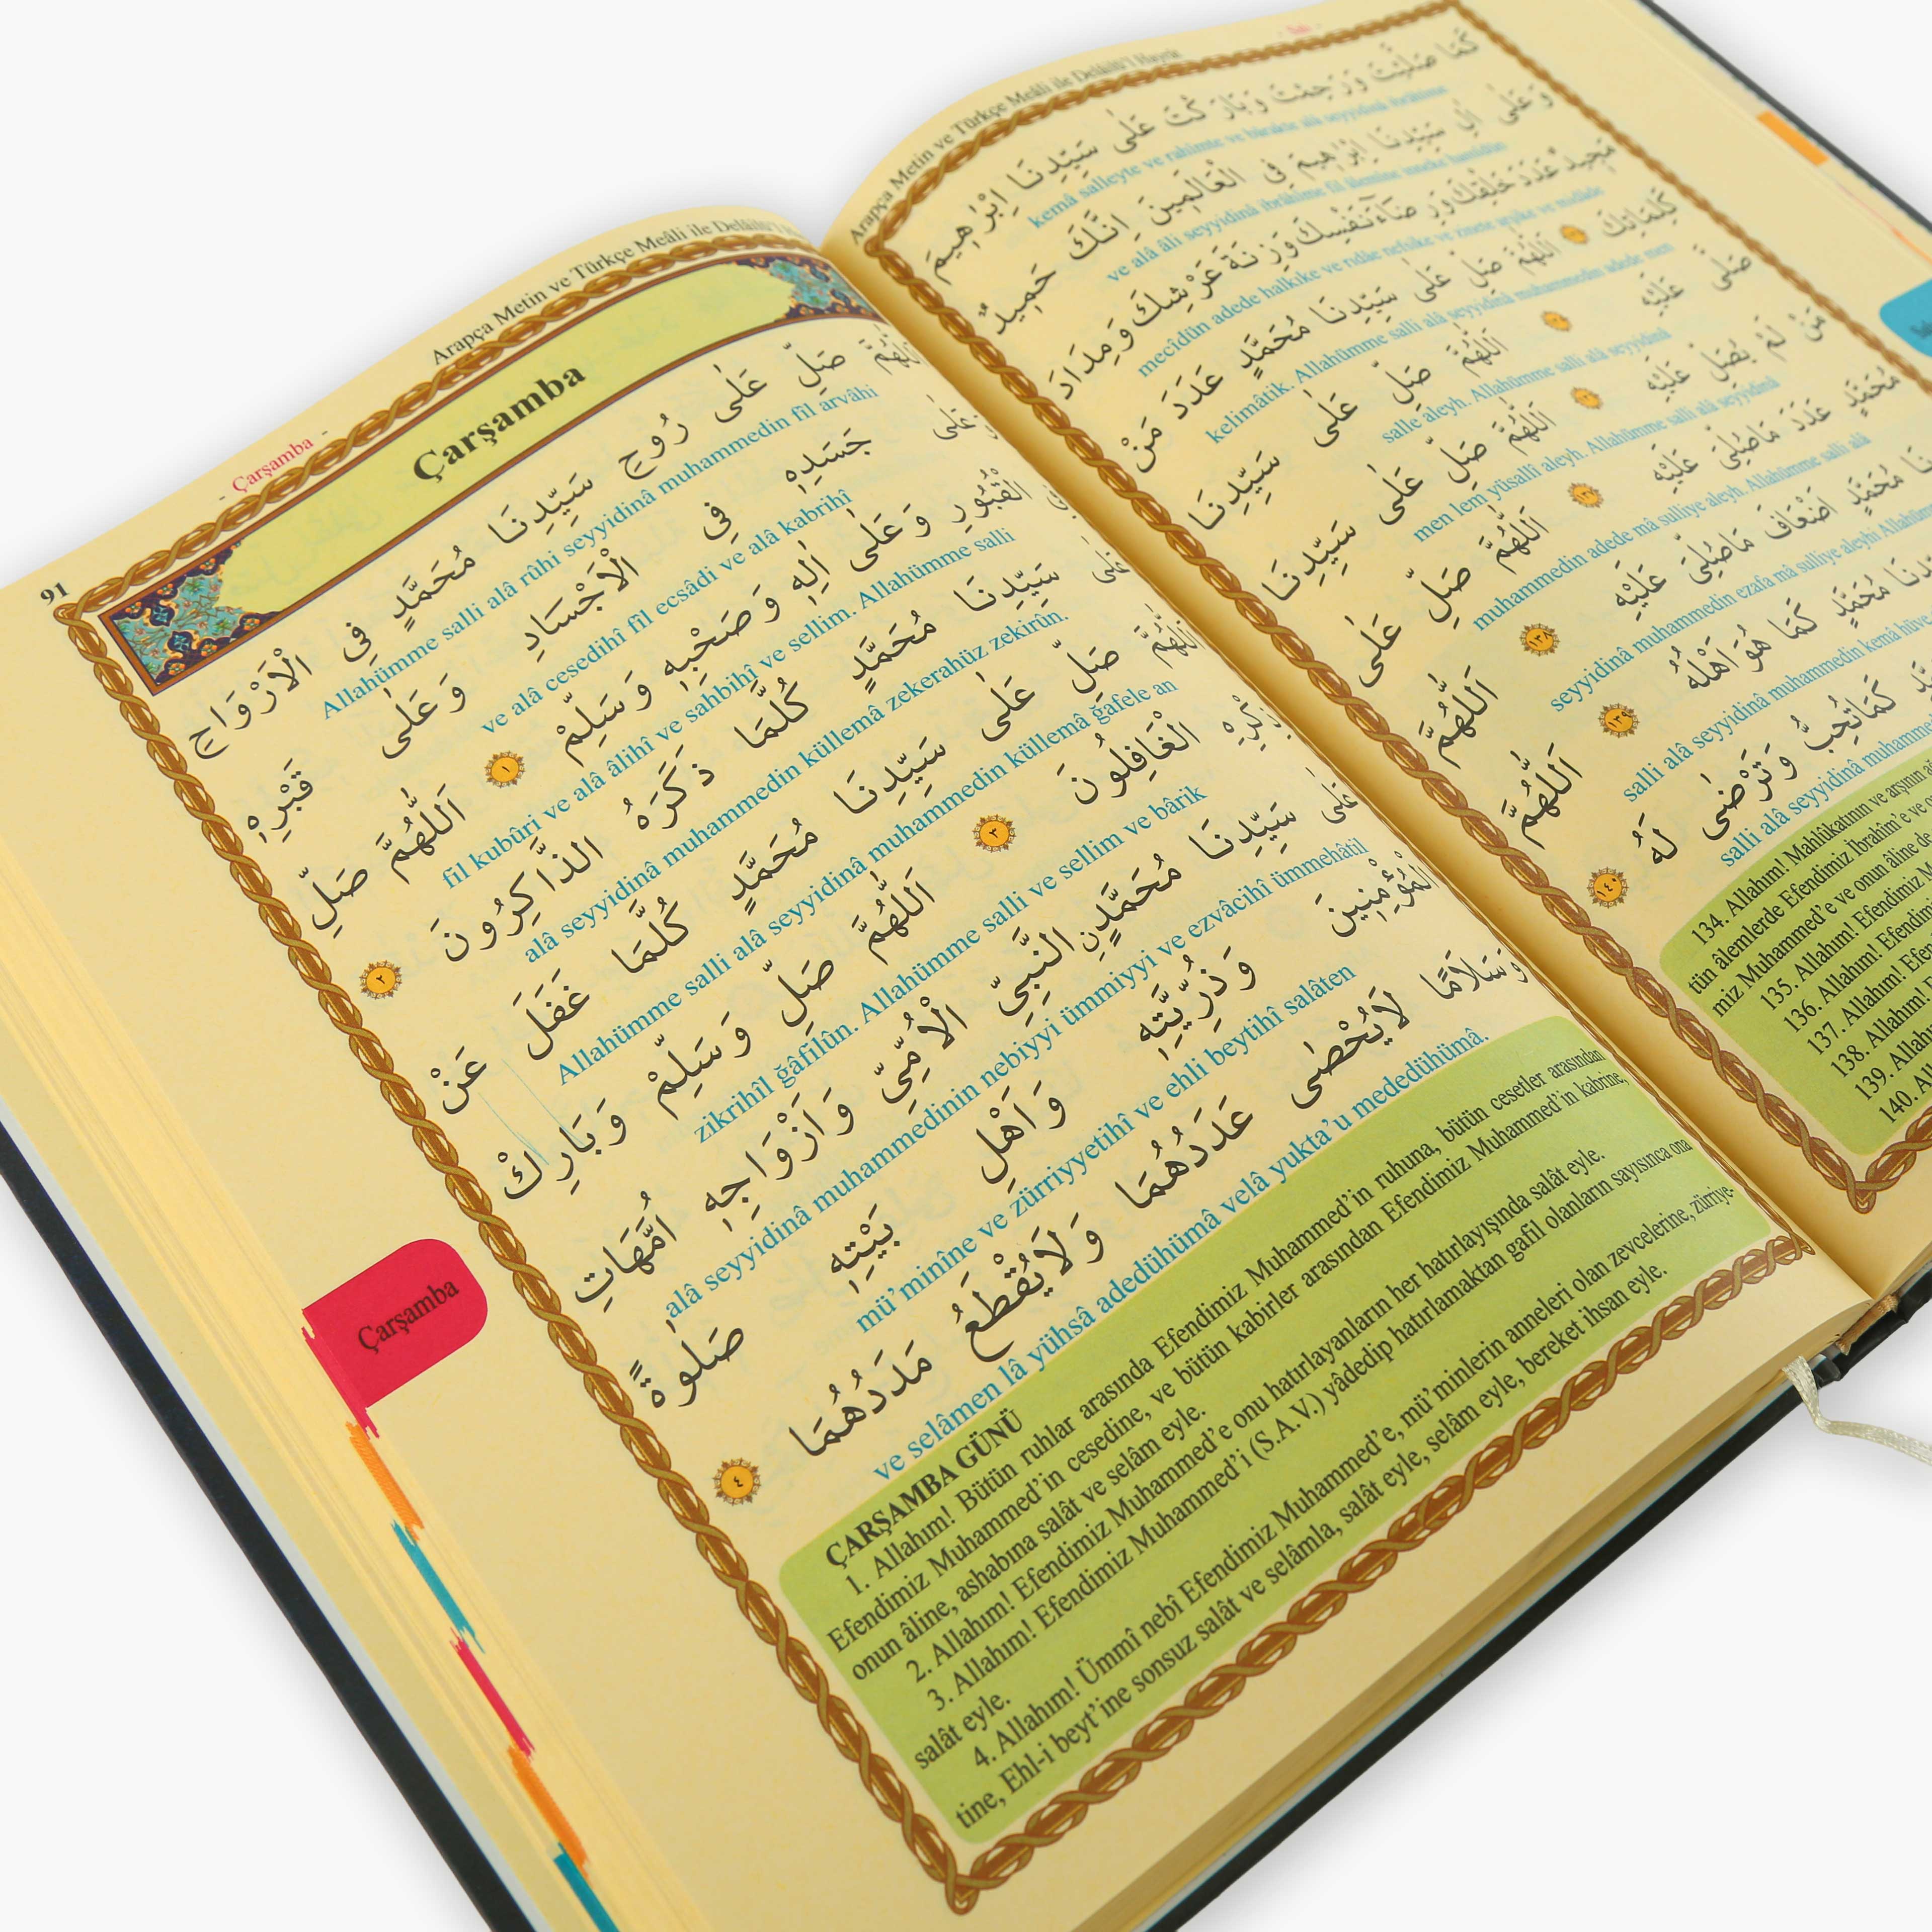 91
Arapça Metin ve Türkçe Meâli ile Delâilü'l
- Çarşamba -
Çarşamba
اَللّٰهُمَّ صَلِّ عَلٰى رُوحِ سَيِّدِنَا مُحَمَّدٍ فِى الْاَرْوَاحِ
Allahümme salli alâ rûhi seyyidinâ muhammedin fil arvâhi
وَعَلٰى جَسَدِهٖ فِى الْاَجْسَادِ وَعَلٰى قَبْرِهٖ
ve alâ cesedihî fil ecsâdi ve alâ kabrihî
فِى الْقُبُورِ وَعَلٰى اٰلِهٖ وَصَحْبِهٖ وَسَلِّمْ ١ اَللّٰهُمَّ صَلِّ
fil kubûri ve alâ âlihî ve sahbihî ve sellim. Allahümme salli
عَلٰى سَيِّدِنَا مُحَمَّدٍ كُلَّمَا ذَكَرَهُ الذَّاكِرُونَ ٢
alâ seyyidinâ muhammedin küllemâ zekerahüz zekirûn.
اَللّٰهُمَّ صَلِّ عَلٰى سَيِّدِنَا مُحَمَّدٍ كُلَّمَا غَفَلَ عَنْ
Allahümme salli alâ seyyidinâ muhammedin küllemâ ğafele an
ذِكْرِهِ الْغَافِلُونَ ٣ اَللّٰهُمَّ صَلِّ وَسَلِّمْ وَبَارِكْ
zikrihîl ğâfilûn. Allahümme salli ve sellim ve bârik
عَلٰى سَيِّدِنَا مُحَمَّدٍنِ النَّبِىِّ الْاُمِّىِّ وَاَزْوَاجِهٖ اُمَّهَاتِ
alâ seyyidinâ muhammedinin nebiyyi ümmiyyi ve ezvâcihî ümmehâtil
الْمُؤْمِنِينَ وَذُرِّيَّتِهٖ وَاَهْلِ بَيْتِهٖ صَلٰوةً
mü'minîne ve zürriyyetihî ve ehli beytihî salâten
وَسَلَامًا لَايُحْصٰى عَدَدُهُمَا وَلَايُقْطَعُ مَدَدُهُمَا ٤
ve selâmen lâ yühsâ adedühümâ velâ yukta'u mededühümâ.
ÇARŞAMBA GÜNÜ
1. Allahım! Bütün ruhlar arasında Efendimiz Muhammed'in ruhuna, bütün cesetler arasından
Efendimiz Muhammed'in cesedine, ve bütün kabirler arasından Efendimiz Muhammed'in kabrine,
onun âline, ashabına salât ve selâm eyle.
2. Allahım! Efendimiz Muhammed'e onu hatırlayanların her hatırlayışında salât eyle.
3. Allahım! Efendimiz Muhammed'i (S.A.V.) yâdedip hatırlamaktan gafil olanların sayısınca ona
salât eyle.
4. Allahım! Ümmî nebî Efendimiz Muhammed'e, mü'minlerin anneleri olan zevcelerine, zürriye-
tine, Ehl-i beyt'ine sonsuz salât ve selâmla, salât eyle, selâm eyle, bereket ihsan eyle.
Çarşamba
Arapça Metin ve Türkçe Meâli ile Delâilü'l Hayrât
كَمَا صَلَّيْتَ وَرَحِمْتَ وَبَارَكْتَ عَلٰى سَيِّدِنَا اِبْرٰهِيمَ
kemâ salleyte ve rahimte ve bârakte alâ seyyidinâ ibrâhîme
وَعَلٰى اٰلِ سَيِّدِنَا اِبْرٰهِيمَ فِى الْعَالَمِينَ اِنَّكَ حَمِيدٌ
ve alâ âli seyyidinâ ibrâhîme fil âlemîne inneke hamîdün
مَجِيدٌ عَدَدَ خَلْقِكَ وَرِضَاءَ نَفْسِكَ وَزِنَةَ عَرْشِكَ وَمِدَادَ
mecîdün adede halkıke ve rıdâe nefsike ve zinete arşike ve midâde
كَلِمَاتِكَ اَللّٰهُمَّ صَلِّ عَلٰى سَيِّدِنَا مُحَمَّدٍ عَدَدَ مَنْ
kelimâtik. Allahümme salli alâ seyyidinâ muhammedin adede men
صَلّٰى عَلَيْهِ اَللّٰهُمَّ صَلِّ عَلٰى سَيِّدِنَا
salle aleyh. Allahümme salli alâ seyyidinâ
مَنْ لَمْ يُصَلِّ عَلَيْهِ اَللّٰهُمَّ صَلِّ عَلٰى سَيِّدِنَا
men lem yüsalli aleyh. Allahümme salli alâ seyyidinâ
مُحَمَّدٍ عَدَدَ مَاصُلِّىَ عَلَيْهِ اَللّٰهُمَّ صَلِّ عَلٰى
muhammedin adede mâ sulliye aleyh. Allahümme salli alâ
مُحَمَّدٍ اَضْعَافَ مَاصُلِّىَ عَلَيْهِ ١٣٨ اَللّٰهُمَّ
seyyidinâ muhammedin ezafa mâ sulliye aleyhi
مُحَمَّدٍ كَمَا هُوَ اَهْلُهُ ١٣٩ اَللّٰهُمَّ
salli alâ seyyidinâ muhammedin kemâ hüve
كَمَاتُحِبُّ وَتَرْضٰى لَهُ ١٤٠
salli alâ seyyidinâ
134. Allahım! Mahlûkatının ve arşının
tün âlemlerde Efendimiz İbrahîm'e ve
miz Muhammed'e ve onun âline de
135. Allahım! Efendimiz
136. Allahım! Efendimiz
137. Allahım!
138. Allahım!
139.
140.